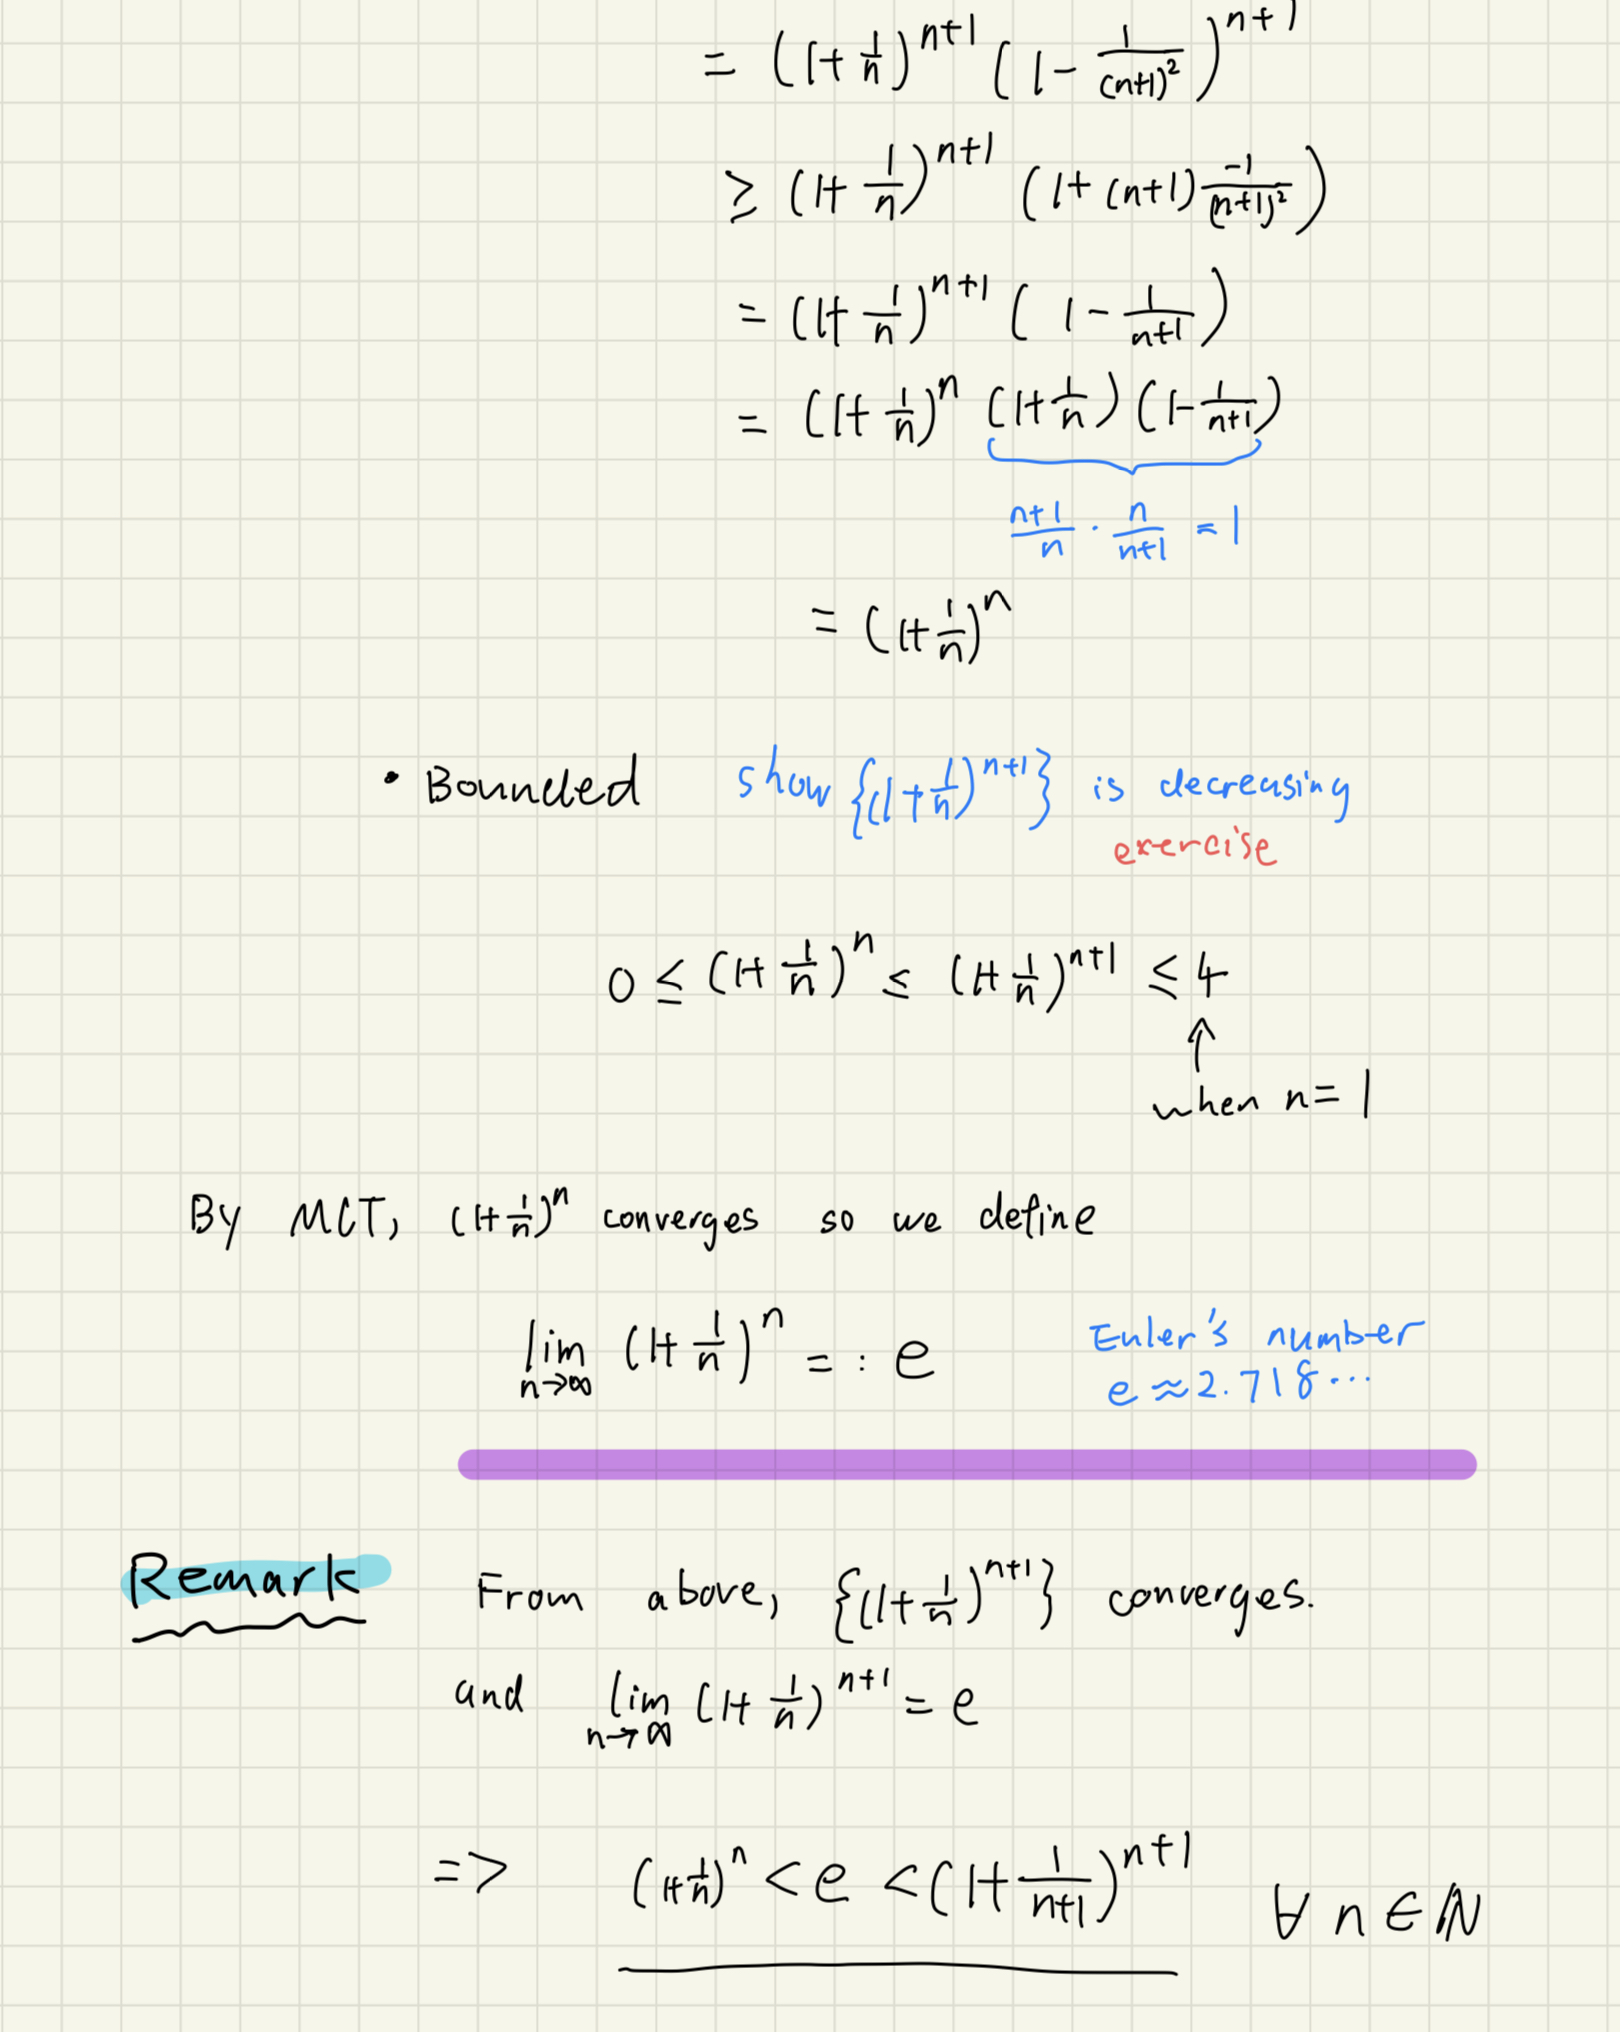 = (1+ 1/n)^{n+1} (1 - 1/(n+1)^2)^{n+1}
≥ (1+ 1/n)^{n+1} (1+ (n+1) -1/(n+1)^2)
= (1+ 1/n)^{n+1} (1 - 1/(n+1))
= (1+ 1/n)^n (1+ 1/n) (1 - 1/(n+1))
(n+1)/n · n/(n+1) = 1
= (1+ 1/n)^n
• Bounded show {(1+ 1/n)^{n+1}} is decreasing
exercise
0 ≤ (1+ 1/n)^n ≤ (1+ 1/n)^{n+1} ≤ 4
↑
when n = 1
By MCT, (1+ 1/n)^n converges so we define
lim_{n→∞} (1+ 1/n)^n =: e Euler's number
e ≈ 2.718...
Remark From above, {(1+ 1/n)^{n+1}} converges.
and lim_{n→∞} (1+ 1/n)^{n+1} = e
=> (1+ 1/n)^n < e < (1+ 1/(n+1))^{n+1} ∀ n ∈ ℕ